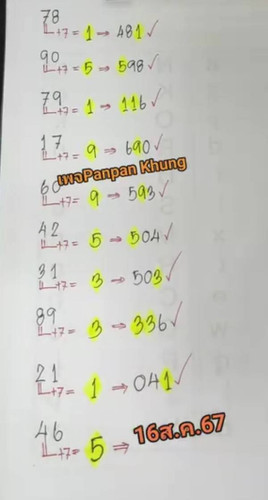 78
+7 = 1 → 481 ✓
90
+7 = 5 → 598 ✓
79
+7 = 1 → 116 ✓
17
+7 = 9 → 690 ✓
เพจPanpan Khung
60
+7 = 9 → 593 ✓
42
+7 = 5 → 504 ✓
31
+7 = 3 → 503 ✓
89
+7 = 3 → 336 ✓
21
+7 = 1 → 041 ✓
46
+7 = 5 →
16ส.ค.67